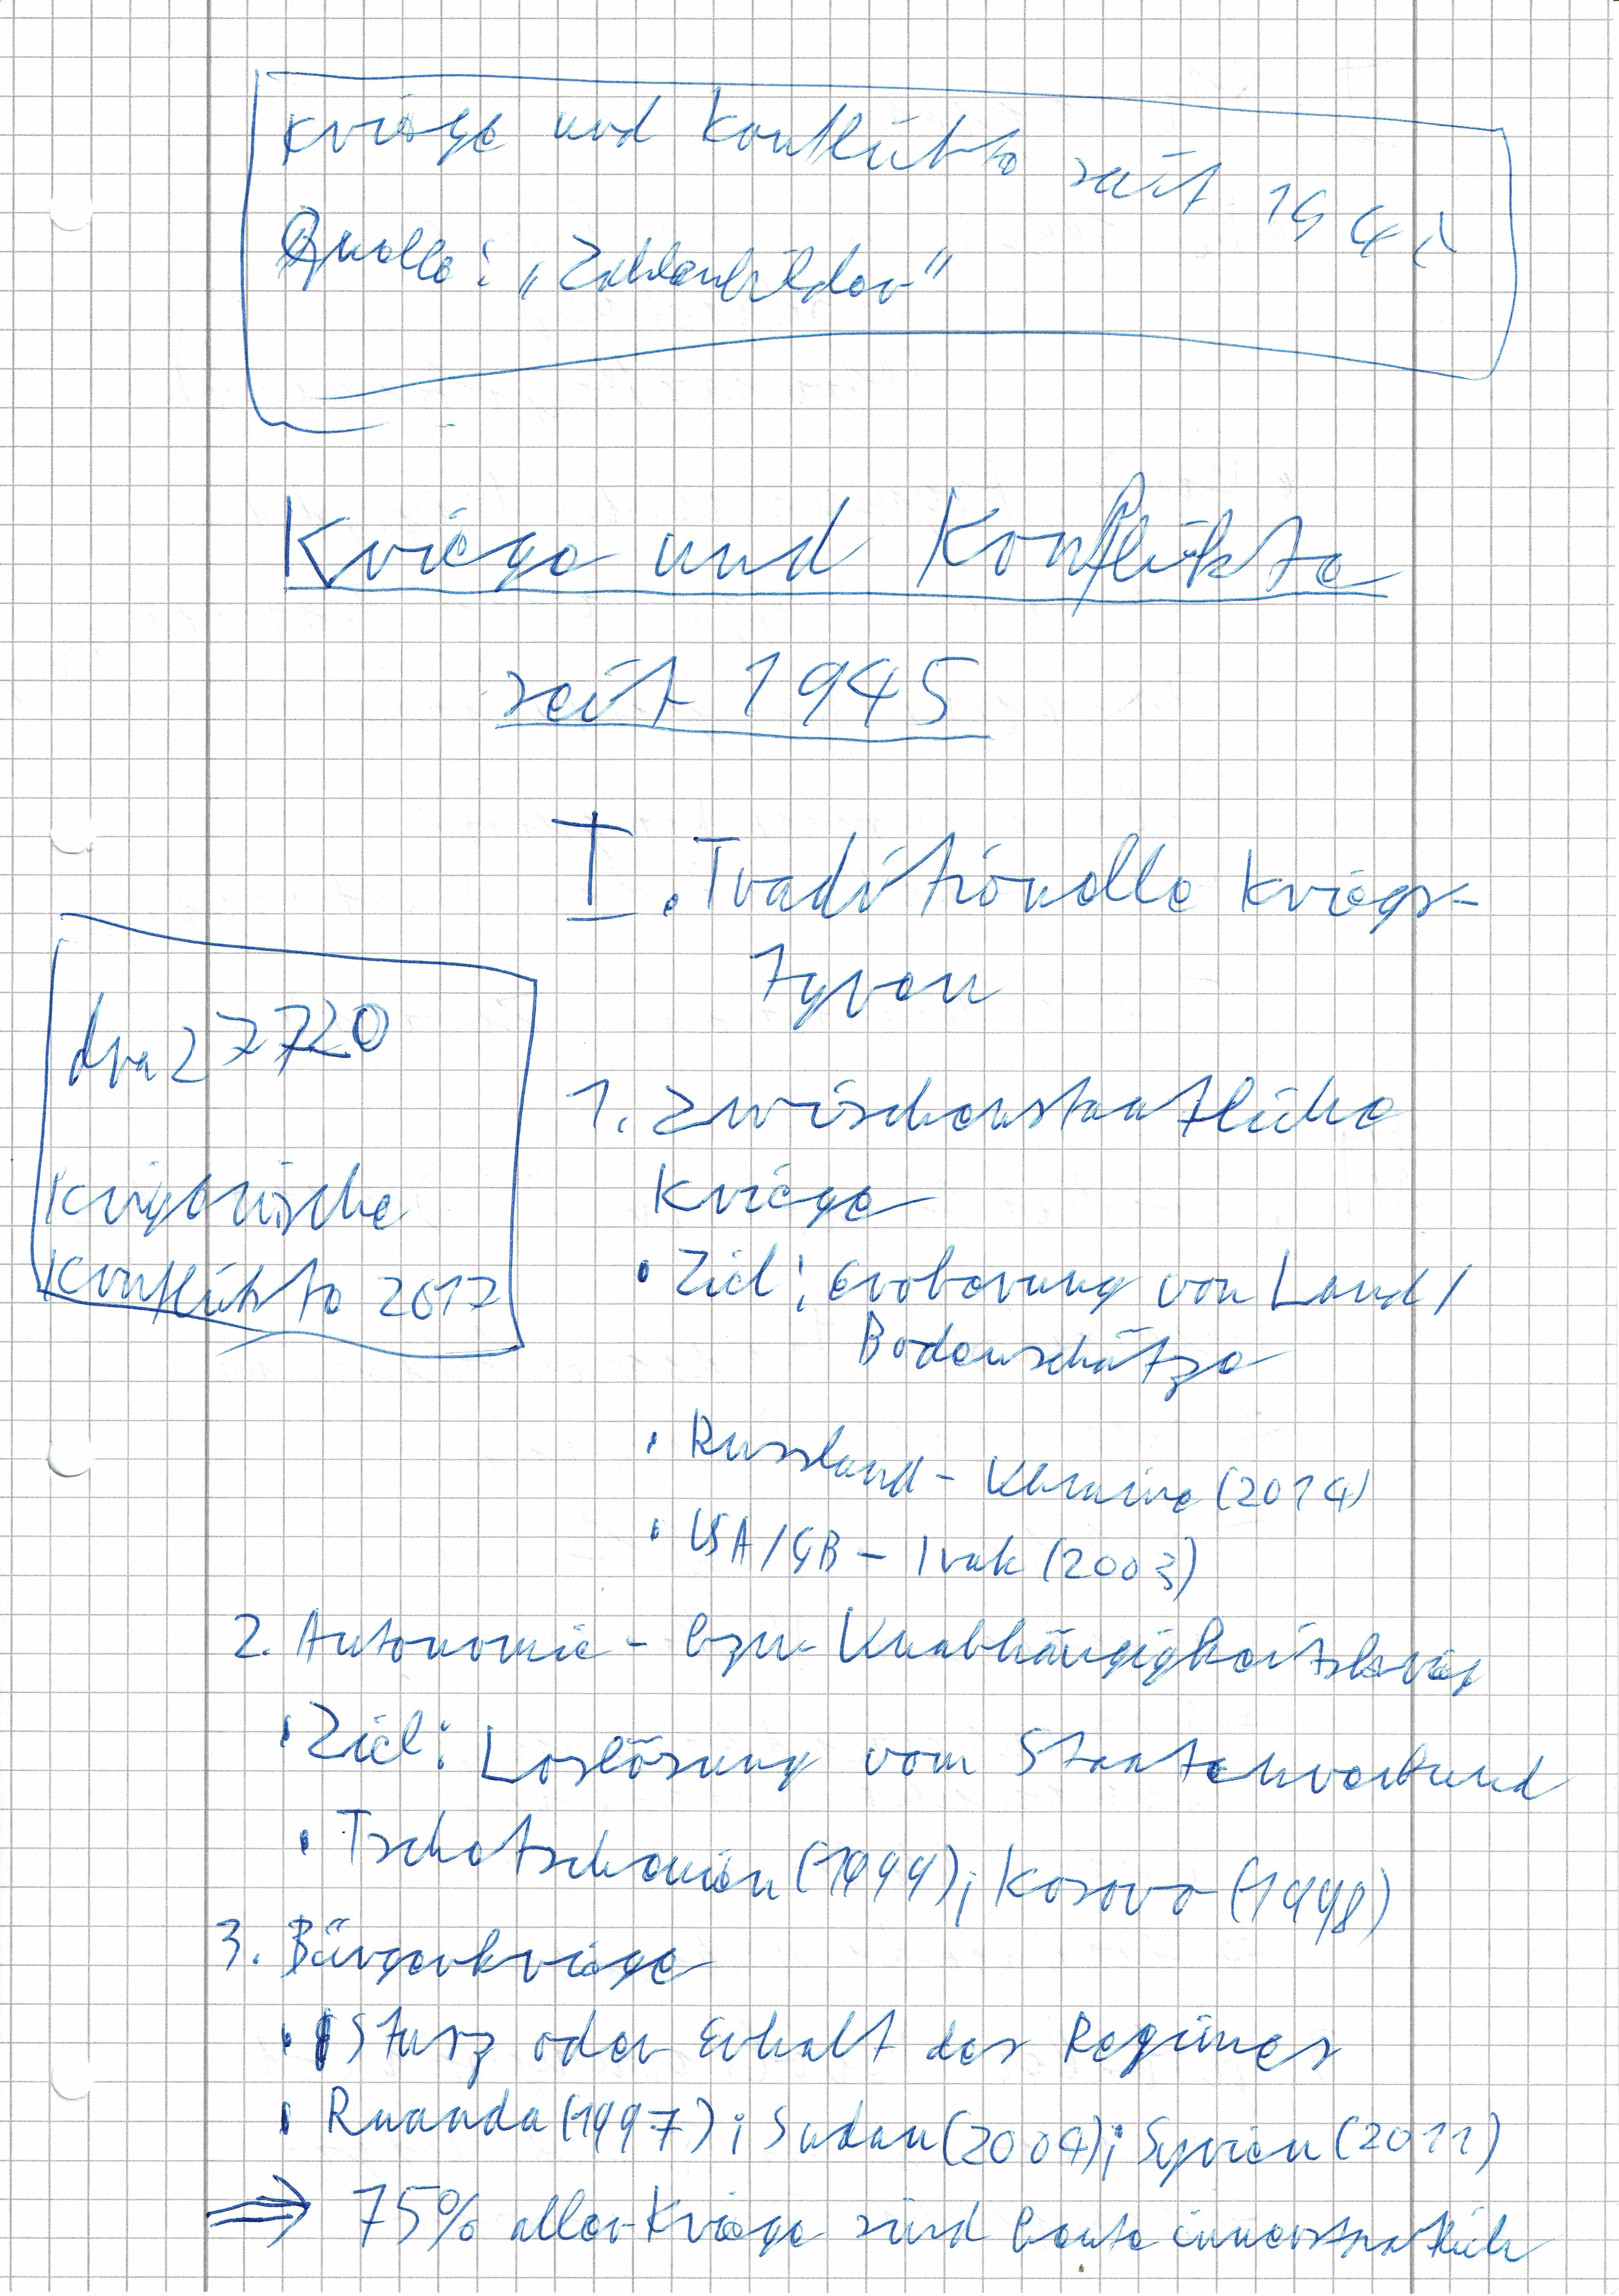 Kriege und Konflikte seit 194
Quelle: „Zahlenbilder"
Kriege und Konflikte
seit 1945
I. Traditionelle Kriegs-
typen
dpa 27720
Kriegerische
Konflikte 2017
1. Zwischenstaatliche
Kriege
• Ziel: Eroberung von Land/
Bodenschätze
• Russland - Ukraine (2014)
• USA/GB - Irak (2003)
2. Autonomie- bzw. Unabhängigkeitskrieg
• Ziel: Loslösung vom Staatenverbund
• Tschetschenien (1999); Kosovo (1998)
3. Bürgerkriege
• Sturz oder Erhalt des Regimes
• Ruanda (1997); Sudan (2004); Syrien (2011)
⇒ 75% aller Kriege sind heute innerstaatlich